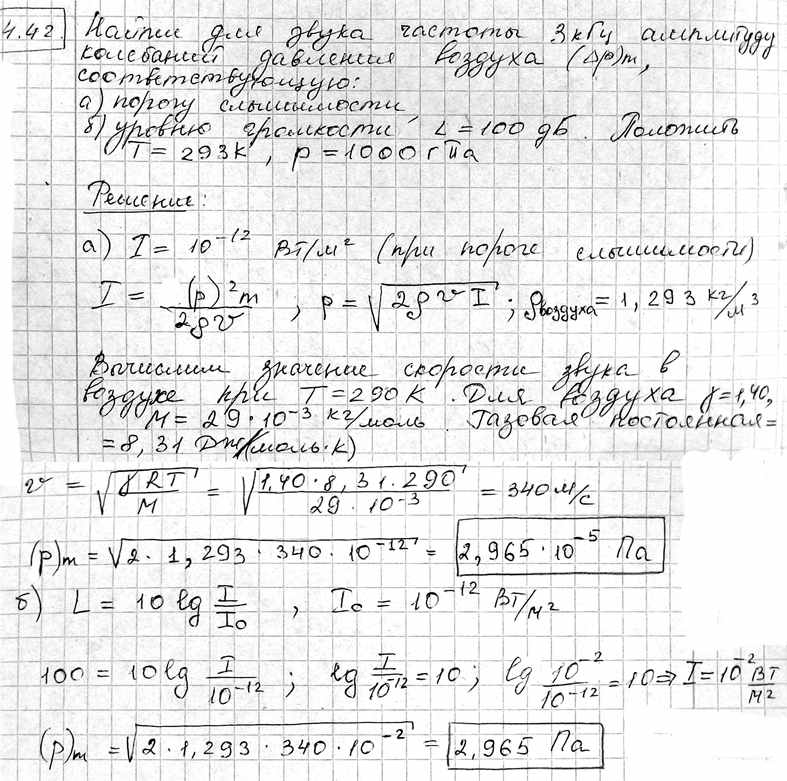 4.42. Найти для звука частоты 3 кГц амплитуду
колебаний давления воздуха (Δp)m,
соответствующую:
а) порогу слышимости
б) уровню громкости L = 100 дБ. Положить
T = 293 К, p = 1000 гПа
Решение:
а) I = 10⁻¹² Вт/м² (при пороге слышимости)
I = (p)²m / 2ρv , p = √(2ρvI) ; ρвоздуха = 1,293 кг/м³
Вычислим значение скорости звука в
воздухе при T = 290 К. Для воздуха γ = 1,40,
M = 29·10⁻³ кг/моль. Газовая постоянная =
= 8,31 Дж/(моль·К)
v = √(γRT / M) = √(1,40·8,31·290 / 29·10⁻³) = 340 м/с
(p)m = √(2·1,293·340·10⁻¹²) = 2,965·10⁻⁵ Па
б) L = 10 lg I/I₀ , I₀ = 10⁻¹² Вт/м²
100 = 10 lg I/10⁻¹² ; lg I/10⁻¹² = 10 ; lg 10⁻²/10⁻¹² = 10 ⇒ I = 10⁻² Вт/м²
(p)m = √(2·1,293·340·10⁻²) = 2,965 Па